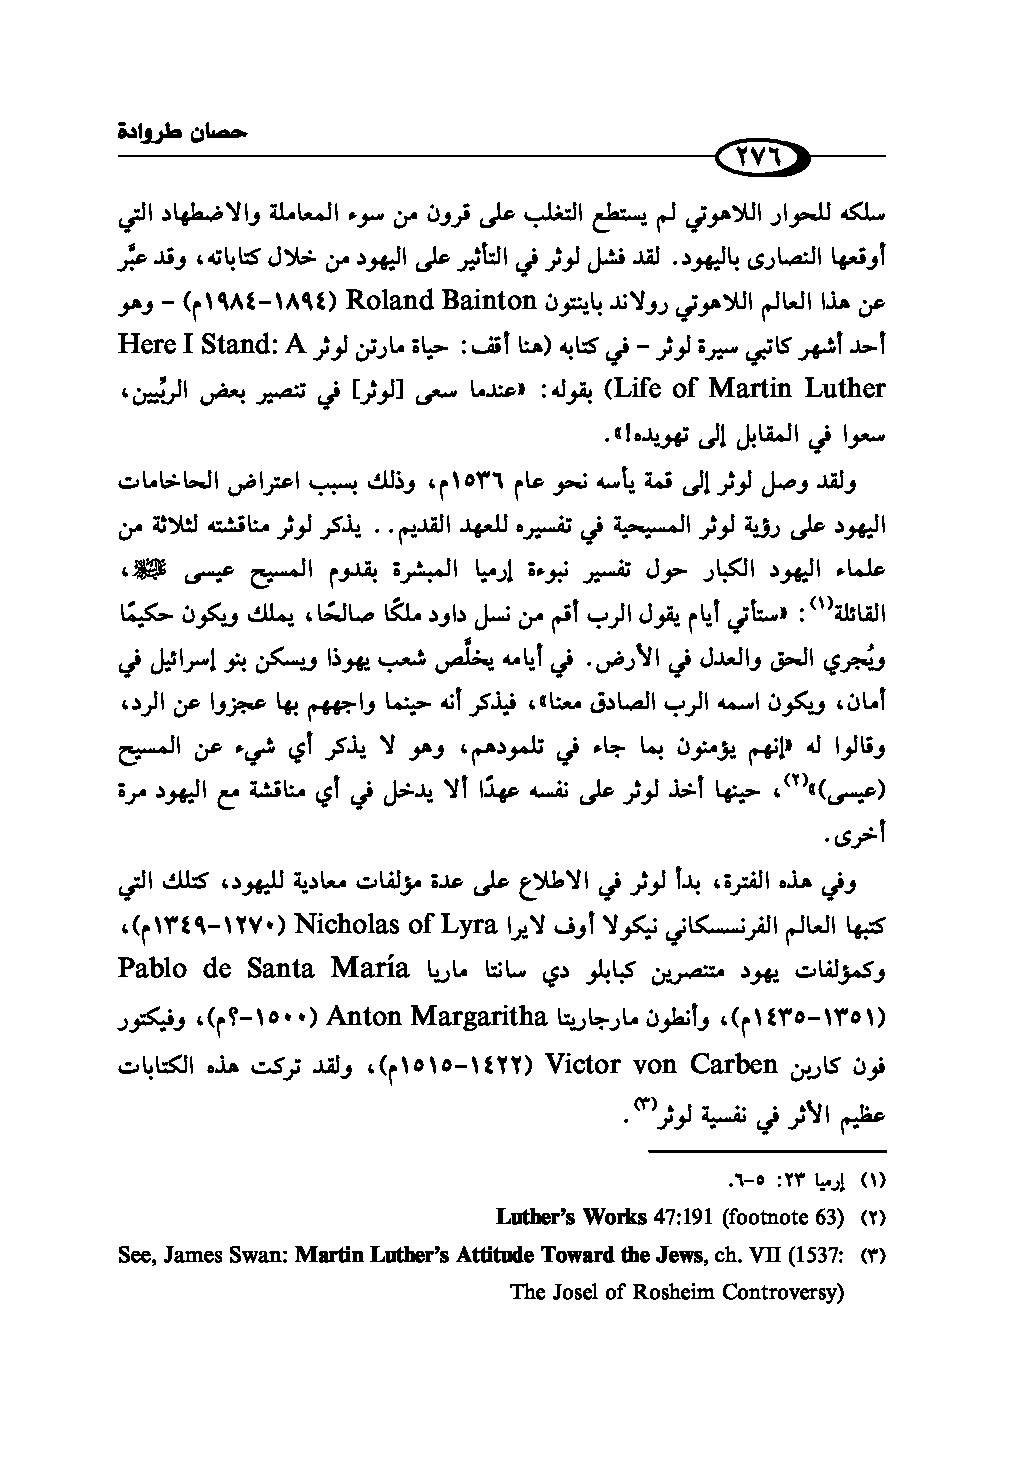 حصان طروادة
٢٧٦
سلكه للحوار اللاهوتي لم يستطع التغلب على قرون من سوء المعاملة والاضطهاد التي
أوقعها النصارى باليهود. لقد فشل لوثر في التأثير على اليهود من خلال كتاباته، وقد عبَّر
عن هذا العالم اللاهوتي رولاند باينتون Roland Bainton (١٨٩٤-١٩٨٤م) - وهو
أحد أشهر كاتبي سيرة لوثر - في كتابه (هنا أقف: حياة مارتن لوثر Here I Stand: A
Life of Martin Luther) بقوله: «عندما سعى [لوثر] في تنصير بعض الربِّيين،
سعوا في المقابل إلى تهويده!».
ولقد وصل لوثر إلى قمة يأسه نحو عام ١٥٣٦م، وذلك بسبب اعتراض الحاخامات
اليهود على رؤية لوثر المسيحية في تفسيره للعهد القديم.. يذكر لوثر مناقشته لثلاثة من
علماء اليهود الكبار حول تفسير نبوءة إرميا المبشرة بقدوم المسيح عيسى ﷺ،
القائلة(١): «ستأتي أيام يقول الرب أقم من نسل داود ملكًا صالحًا، يملك ويكون حكيمًا
ويُجري الحق والعدل في الأرض. في أيامه يخلَّص شعب يهوذا ويسكن بنو إسرائيل في
أمان، ويكون اسمه الرب الصادق معنا»، فيذكر أنه حينما واجههم بها عجزوا عن الرد،
وقالوا له «إنهم يؤمنون بما جاء في تلمودهم، وهو لا يذكر أي شيء عن المسيح
(عيسى)»(٢)، حينها أخذ لوثر على نفسه عهدًا ألا يدخل في أي مناقشة مع اليهود مرة
أخرى.
وفي هذه الفترة، بدأ لوثر في الاطلاع على عدة مؤلفات معادية لليهود، كتلك التي
كتبها العالم الفرنسسكاني نيكولا أوف لايرا Nicholas of Lyra (١٢٧٠-١٣٤٩م)،
وكمؤلفات يهود متنصرين كبابلو دي سانتا ماريا Pablo de Santa María
(١٣٥١-١٤٣٥م)، وأنطون مارجاريتا Anton Margaritha (١٥٠٠-؟م)، وفيكتور
فون كاربن Victor von Carben (١٤٢٢-١٥١٥م)، ولقد تركت هذه الكتابات
عظيم الأثر في نفسية لوثر(٣).
(١) إرميا ٢٣: ٥-٦.
(٢) Luther's Works 47:191 (footnote 63)
(٣) See, James Swan: Martin Luther's Attitude Toward the Jews, ch. VII (1537:
The Josel of Rosheim Controversy)